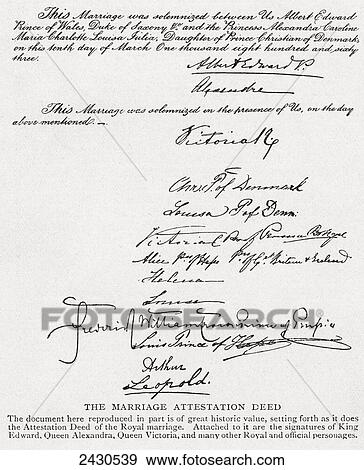 This Marriage was solemnized between Us Albert Edward
Prince of Wales, Duke of Saxony &c. and the Princess Alexandra Caroline
Maria Charlotte Louisa Julia, Daughter of Prince Christian of Denmark,
on this tenth day of March One thousand eight hundred and sixty
three.
Albert Edward P.
Alexandra
This Marriage was solemnized in the presence of Us, on the day
above mentioned —
Victoria R
Chr. P. of Denmark
Louisa P. of Denm:
Victoria
Alice
Helena
Louise
Frederick William Crown Prince of Prussia
Louis Prince of Hesse
Arthur
Leopold.
THE MARRIAGE ATTESTATION DEED
The document here reproduced in part is of great historic value, setting forth as it does
the Attestation Deed of the Royal marriage. Attached to it are the signatures of King
Edward, Queen Alexandra, Queen Victoria, and many other Royal and official personages.
fotosearch
2430539 www.fotosearch.com